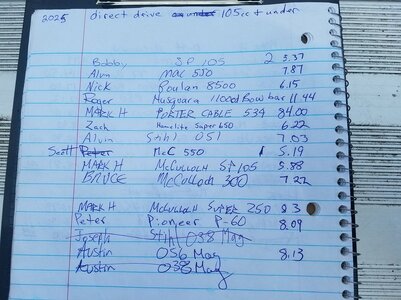 2025 direct drive 105cc + under
Bobby SP 105 2 3.37
Alvn Mac 550 7.87
Nick Poulan 8500 6.15
Roger Husqvara 1100cd Bow bar 11.44
MARK H PORTER CABLE 534 84.00
Zach Homelite Super 650 6.22
Alvin Stihl 051 7.03
Scott Peter McC 550 5.19
MARK H McCulloch SP 105 5.88
BRUCE McCulloch 300 7.22
MARK H McCulloch SUPER 250 93
Peter Pioneer P-60 8.09
Joseph Stihl 038 Mag
Austin 056 Mag 8.13
Austin 038 Mag